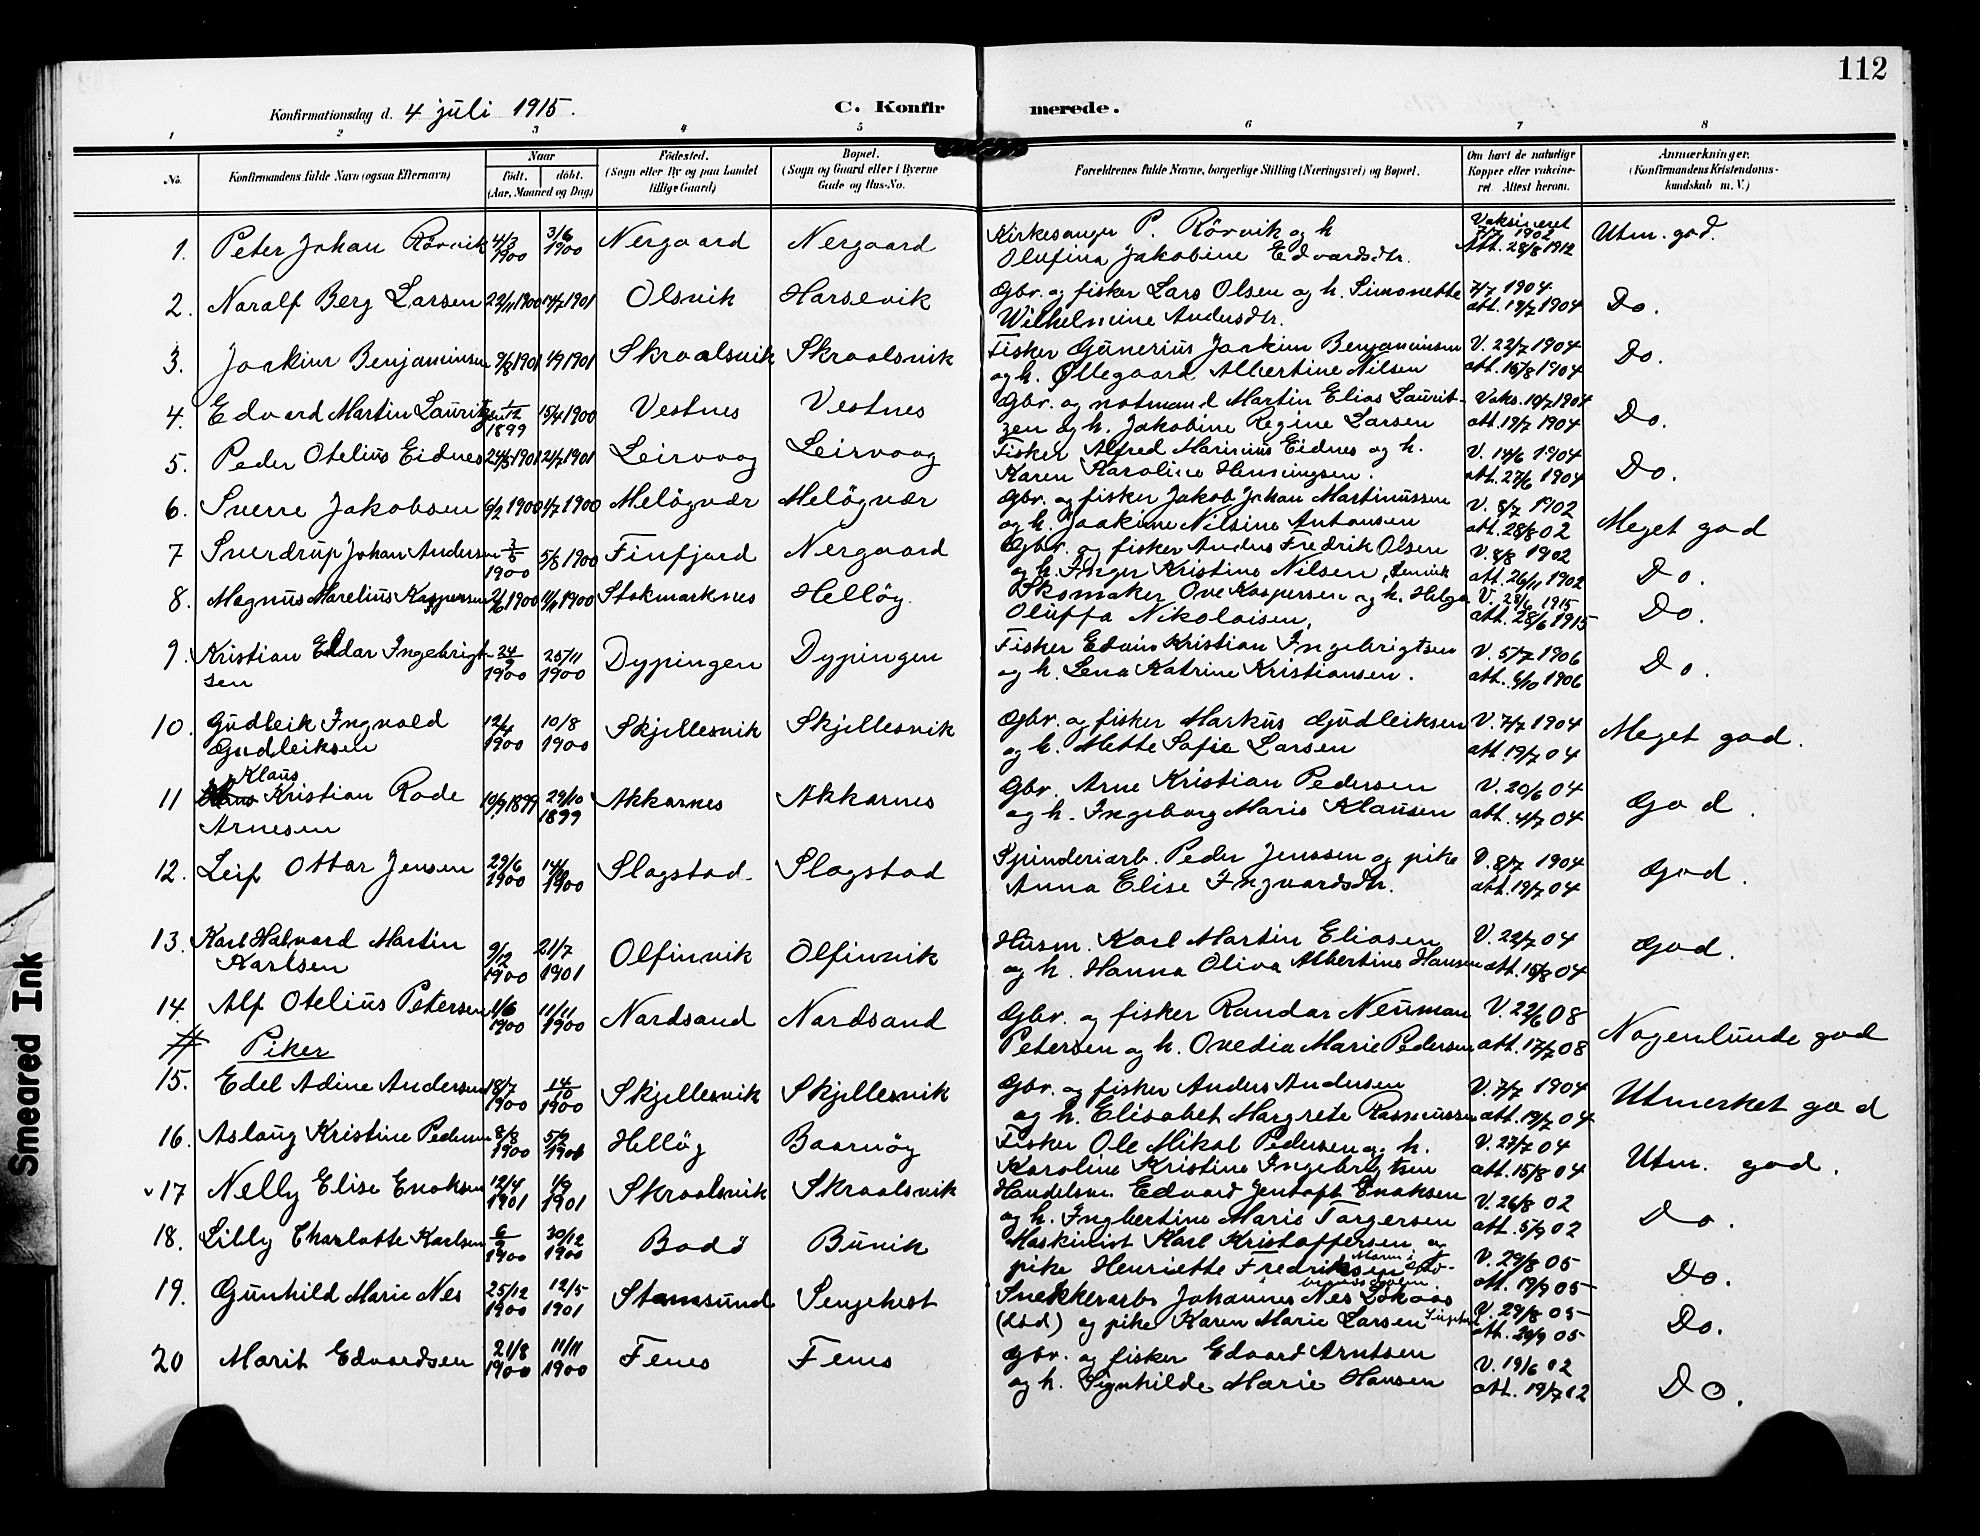 112
Konfirmationsdag d. 4 juli 1915.
C. Konfirmerede.
1 2 3 4 5 6 7 8
No. Konfirmandens fulde Navn (ogsaa Efternavn) Naar født. døbt. (Aar, Maaned og Dag) Fødested. (Sogn eller By og paa Landet tillige Gaard) Bopæl. (Sogn og Gaard eller i Byerne Gade og Hus-No. Forældrenes fulde Navne, borgerlige Stilling (Næringsvei) og Bopæl. Om havt de naturlige Kopper eller vakcineret. Attest herom. Anmærkninger. (Konfirmandens Kristendomskundskab m. V.)
1. Peter Johan Rörvik 4/3 1900 3/6 1900 Nergaard Nergaard Kirkesanger P. Rörvik og h Vaksineret 1902 Utm. god.
Olufina Jakobine Edvardsdtr. Att. 28/8 1912
2. Naralf Berg Larsen 22/11 1900 14/7 1901 Olsvik Harsevik Gbr. og fisker Lars Olsen og h. Simonette 7/7 1904 Do.
Wilhelmine Andersdtr. att. 19/7 1904
3. Joakim Benjaminsen 1901 1901 Skraalsvik Skraalsvik Fisker Gunerius Joakim Benjaminsen V. 22/7 1904 Do.
og h. Øllegaard Albertine Nilsen att. 15/8 1904
4. Edvard Martin Lauritzen 1/12 1899 15/4 1900 Vestnes Vestnes Gbr. og notmand Martin Elias Laurit- Vaks. 10/7 1904 Do.
zen og h. Jakobine Regine Larsen att. 19/7 1904
5. Peder Otelius Eidnes 24/5 1901 21/7 1901 Leirvaag Leirvaag Fisker Alfred Marinius Eidnes og h. V. 14/6 1904 Do.
Karen Karoline Henningsen. att. 27/6 1904
6. Sverre Jakobsen 6/2 1900 1/7 1900 Melögvær Melögvær Gbr. og fisker Jakob Johan Martinussen V. 8/7 1902 Meget god
og h. Joakime Nilsine Antonsen att. 28/8 02
7 Sverdrup Johan Andersen 3/5 1900 5/8 1900 Finfjord Nergaard Gbr. og fisker Anders Fredrik Olsen V. 8/8 1902 Do.
og h. Inger Kristine Nilsen, Lenvik att. 26/11 1902
8. Magnus Marelius Kaspersen 1900 1900 Stokmarknes Hellög. Skomaker Ove Kaspersen og h. Helga V. 28/6 1915 Do.
Oluffa Nikolaisen, att. 28/6 1915
9. Kristian Eldar Ingebrigt- 24/9 1900 25/11 1900 Dypingen Dypingen Fisker Edvin Kristian Ingebrigtsen V. 5/7 1906 Do.
sen og h. Lena Katrine Kristiansen. att. 6/10 1906
10. Gudleik Ingvald 12/4 1900 10/8 1900 Skjellesvik Skjellesvik Gbr. og fisker Markus Gudleiksen V. 7/7 1904 Meget god.
Gudleiksen og h. Mette Sofie Larsen att. 19/7 04
Klaus
11 Kristian Rode 19/9 1899 29/10 1899 Akkarnes Akkarnes Gbr. Arne Kristian Pedersen V. 20/6 04 God.
Arnesen og h. Ingeborg Marie Klausen att. 4/7 04
12. Leif Ottar Jensen 29/6 1900 1900 Slagstad Slagstad Spinderiarb. Peder Jenssen og pike V. 8/7 1904 God.
Anna Elise Ingvardsdtr. att. 19/7 04
13. Karl Halvard Martin 9/12 1900 21/7 1901 Olfinvik Olfinvik Husm. Karl Martin Eliasen V. 22/7 04 God.
Karlsen og h. Hanna Oliva Albertine Hansen att. 15/8 04
14. Alf Otelius Petersen 1/6 1900 11/11 1900 Nordsand Nordsand Gbr. og fisker Randar Neuman V. 22/6 08 Nogenlunde god
Petersen og h. Ovedia Marie Pedersen att. 17/7 08
Piker
15. Edel Adine Andersen 18/7 1900 14/10 1900 Skjellesvik Skjellesvik Gbr. og fisker Anders Andersen V. 7/7 1904 Utmerket god
og h. Elisabet Margrete Rasmussen att. 19/7 04
16. Aslaug Kristine Pedersen 8/8 1900 Hellög Baarnög Fisker Ole Mikal Pedersen og h. V. 27/7 04 Utm. god.
Karoline Kristine Ingebrigtsen att. 15/8 04
17 Nelly Elise Enoksen 12/4 1901 1/9 1901 Skraalsvik Skraalsvik Handelsm. Edvard Jentoft Enoksen V. 26/8 02 Do.
og h. Ingbertine Marie Torgersen att. 5/9 02
18. Lilly Charlotte Karlsen 6/9 1900 30/12 1900 Bodö Bunik Maskinist Karl Kristoffersen og V. 29/8 05 Do.
pike Henriette Fredriksen att. 19/9 05
19. Gunhild Marie Nes 25/12 1900 12/5 1901 Stamsund Sengehest Snekkerarb. Johannes Nes V. 29/8 05 Do.
(död) og pike Karen Marie Larsen att. 20/9 05
20 Marit Edvardsen 21/8 1900 11/11 1900 Fenes Fenes Gbr. og fisker Edvard Arntsen V. 19/6 02 Do.
og h. Signhilde Marie Hansen att. 19/7 12
Smeared Ink